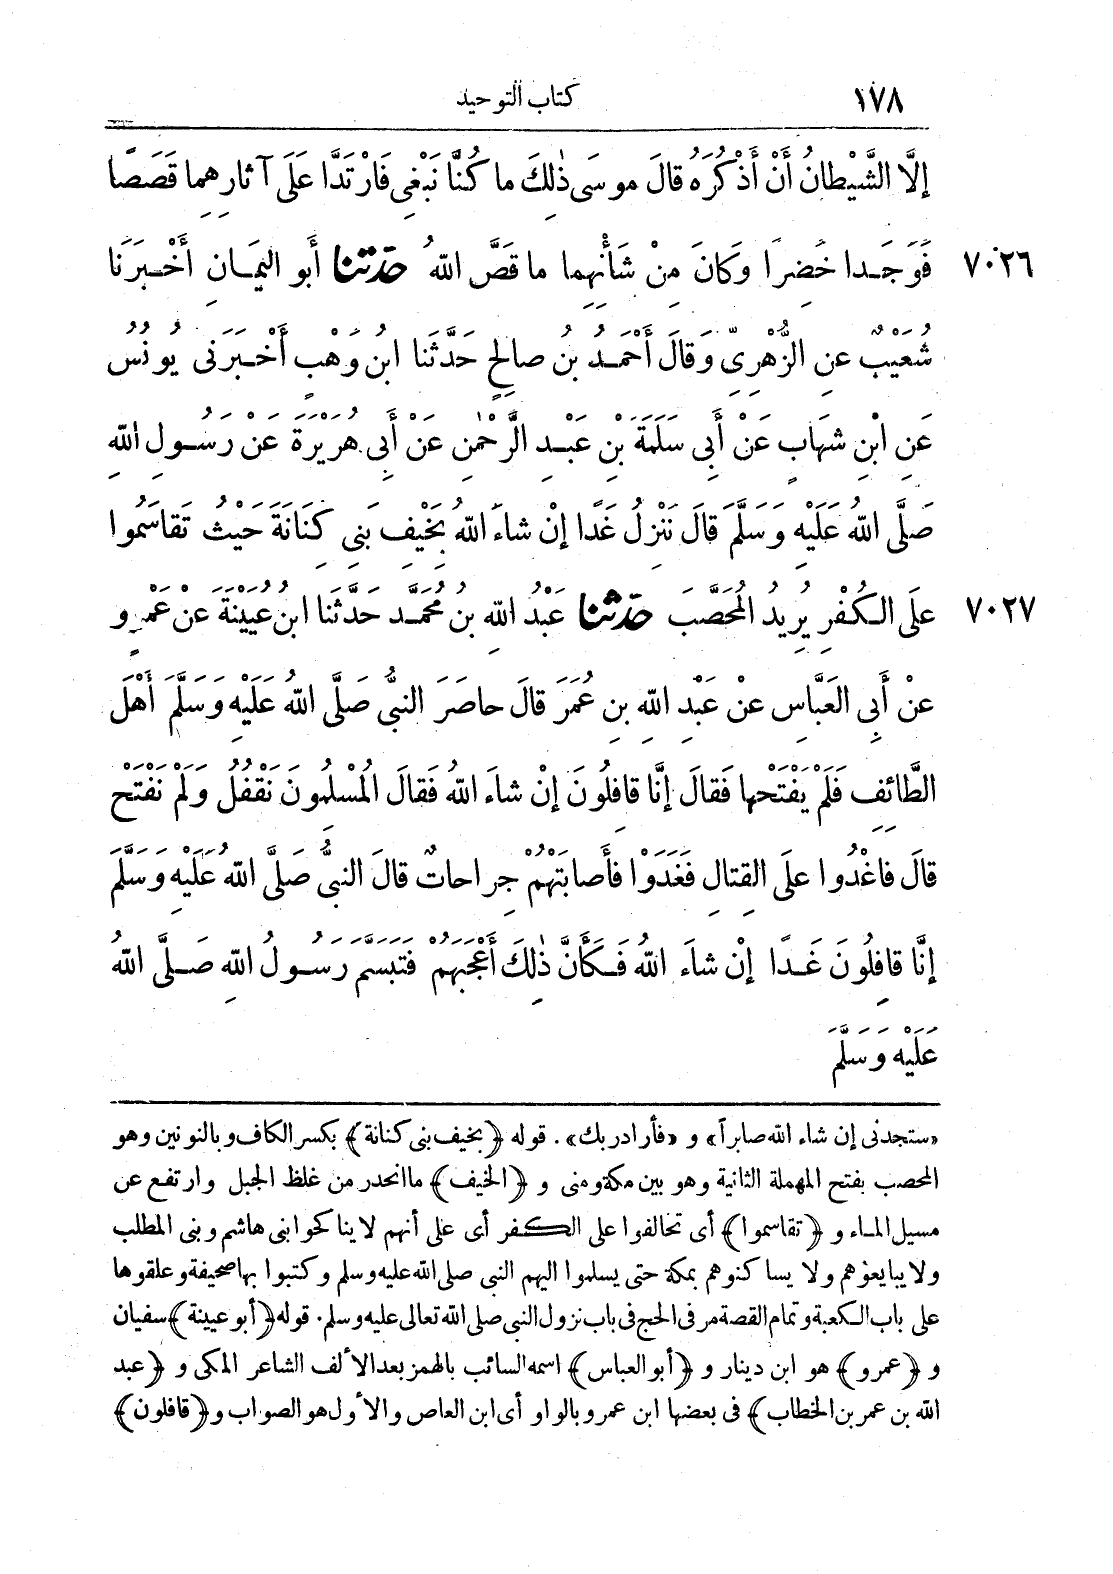 ١٧٨
كتاب التوحيد
إِلَّا الشَّيْطَانُ أَنْ أَذْكُرَهُ قَالَ مُوسَى ذٰلِكَ ما كُنَّا نَبْغِى فَارْتَدَّا عَلَى آثارِهِما قَصَصًا
٧٠٢٦ فَوَجَدا خَضِرًا وَكانَ مِنْ شَأْنِهِما ما قَصَّ اللهُ حَدَّثَنَا أَبو اليَمَانِ أَخْبَرَنَا
شُعَيْبٌ عنِ الزُّهْرِىِّ وَقالَ أَحْمَدُ بنُ صالِحٍ حَدَّثَنا ابنُ وَهْبٍ أَخْبَرَنى يونُسُ
عَنِ ابْنِ شِهابٍ عَنْ أَبِي سَلَمَةَ بْنِ عَبْدِ الرَّحْمٰنِ عَنْ أَبِى هُرَيْرَةَ عَنْ رَسُولِ اللهِ
صَلَّى اللهُ عَلَيْهِ وَسَلَّمَ قالَ نَنْزِلُ غَدًا إِنْ شاءَ اللهُ بِخَيْفِ بَنِي كِنَانَةَ حَيْثُ تَقاسَمُوا
٧٠٢٧ علَى الكُفْرِ يُرِيدُ المُحَصَّبَ حَدَّثَنَا عَبْدُ اللهِ بنُ مُحَمَّدٍ حَدَّثَنا ابنُ عُيَيْنَةَ عنْ عَمْرٍو
عنْ أَبِى العَبَّاسِ عنْ عَبْدِ اللهِ بنِ عُمَرَ قالَ حاصَرَ النبىُّ صَلَّى اللهُ عَلَيْهِ وَسَلَّمَ أَهْلَ
الطَّائِفِ فَلَمْ يَفْتَحْها فَقالَ إِنَّا قافِلُونَ إِنْ شاءَ اللهُ فَقالَ المُسْلِمُونَ نَقْفُلُ وَلَمْ نَفْتَحْ
قالَ فاغْدُوا علَى القِتالِ فَغَدَوْا فأَصابَتْهُمْ جِراحاتٌ قالَ النبىُّ صَلَّى اللهُ عَلَيْهِ وَسَلَّمَ
إِنَّا قافِلُونَ غَدًا إِنْ شاءَ اللهُ فَكَأَنَّ ذٰلِكَ أَعْجَبَهُمْ فَتَبَسَّمَ رَسُولُ اللهِ صَلَّى اللهُ
عَلَيْهِ وَسَلَّمَ
«ستجدنى إن شاء الله صابراً» و «فأراد ربك». قوله ﴿بخيف بنى كنانة﴾ بكسر الكاف وبالنونين وهو
المحصب بفتح المهملة الثانية وهو بين مكة ومنى و ﴿الخيف﴾ ما انحدر من غلظ الجبل وارتفع عن
مسيل الماء و ﴿تقاسموا﴾ أى تحالفوا على الكفر أى على أنهم لا يناكحوا بنى هاشم وبنى المطلب
ولا يبايعوهم ولا يساكنوهم بمكة حتى يسلموا اليهم النبي صلى الله عليه وسلم وكتبوا بها صحيفة وعلقوها
على باب الكعبة وتمام القصة مر فى الحج فى باب نزول النبى صلى الله تعالى عليه وسلم. قوله ﴿أبو عيينة﴾ سفيان
و ﴿عمرو﴾ هو ابن دينار و ﴿أبو العباس﴾ اسمه السائب بالهمز بعد الألف الشاعر المكى و ﴿عبد
الله بن عمر بن الخطاب﴾ فى بعضها ابن عمرو بالواو أى ابن العاص والأول هو الصواب و ﴿قافلون﴾